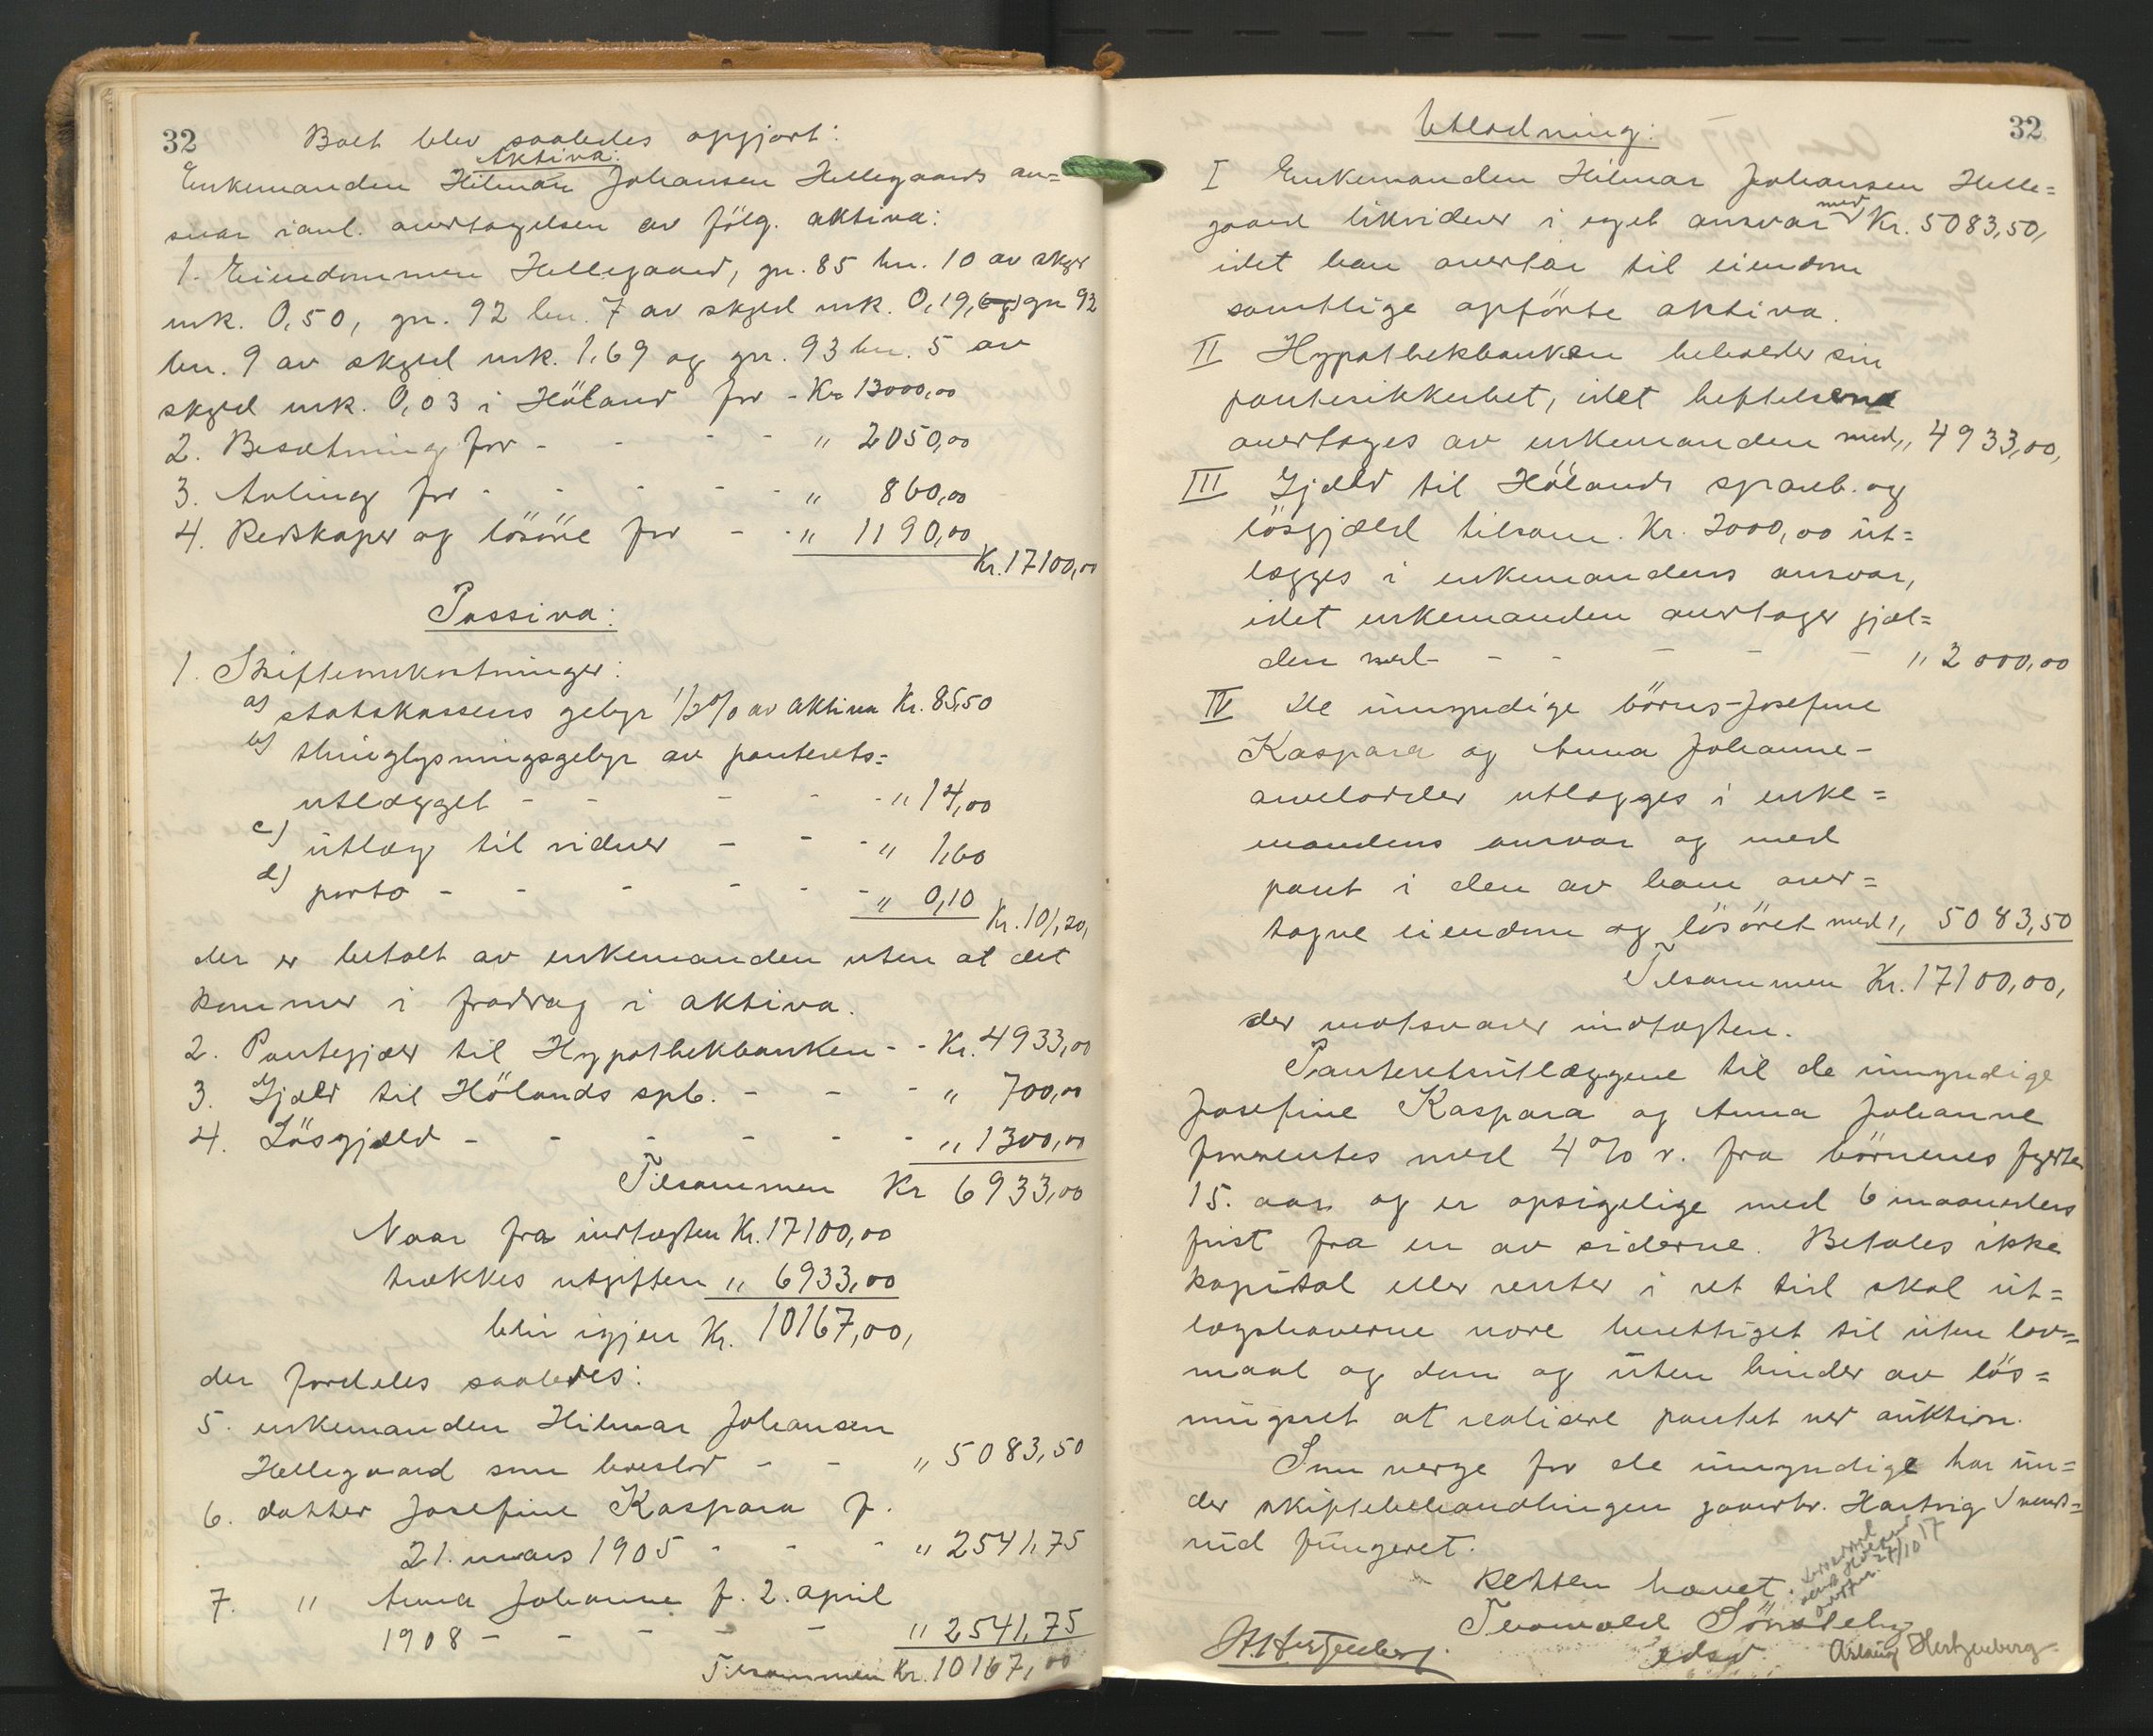 32
Boet blev saaledes opgjort:
Aktiva:
Enkemanden Hilmar Johansen Hellegaards an=
svar i anl. overtagelsen av følg. aktiva:
1. Eiendommen Hellegaard, gn. 85 bn. 10 av skyld
mk. 0,50, gn. 92 bn. 7 av skyld mk. 0,19, gn 92
bn. 9 av skyld mk. 1,69 og gn. 93 bn. 5 av
skyld mk. 0,03 i Höland for - Kr 13000,00
2. Besætning for - - - - " 2050,00
3. Avling for - - - - - " 860,00
4. Redskaper og lösöre for - - " 1190,00
Kr. 17100,00
Passiva:
1. Skifteomkostninger:
a) statskassens gebyr 1/2 % av aktiva Kr. 85,50
b) thinglysningsgebyr av panterets=
utlægget - - - - - " 14,00
c) utlæg til vidner - - - " 1,60
d) porto - - - - - - " 0,10
Kr. 101,20,
der er betalt av enkemanden uten at det
kommer i fradrag i aktiva.
2. Pantegjæld til Hypothekbanken - - Kr. 4933,00
3. Gjæld til Hölands spb. - - - " 700,00
4. Lösgjæld - - - - - - " 1300,00
Tilsammen Kr 6933,00
Naar fra indtægten Kr. 17100,00
trækkes utgiften " 6933,00
blir igjen Kr. 10167,00,
der fordeles saaledes:
5. enkemanden Hilmar Johansen
Hellegaard som boeslod - - " 5083,50
6. datter Josefine Kaspara f.
21. mars 1905 - - - " 2541,75
7. " Anna Johanne f. 2. april
1908 - - - - - " 2541,75
Tilsammen Kr. 10167,00
32
Utlodning:
I Enkemanden Hilmar Johansen Helle=
gaard likviderer i eget ansvar med Kr. 5083,50,
idet han overtar til eiendom
samtlige opförte aktiva.
II Hypothekbanken beholder sin
pantesikkerhet, idet heftelsene
overtages av enkemanden med " 4933,00,
III Gjæld til Hölands spareb. og
lösgjæld tilsam. Kr. 2000,00 ut=
lægges i enkemandens ansvar,
idet enkemanden overtager gjæl=
den med - - - - - " 2000,00
IV De umyndige börns - Josefine
Kaspara og Anna Johanne -
arvelodder utlægges i enke=
mandens ansvar og med
pant i den av ham over=
tagne eiendom og lösöret med " 5083,50
Tilsammen Kr. 17100,00,
der motsvarer indtægten.
Panteretsutlæggene til de umyndige
Josefine Kaspara og Anna Johanne
forrentes med 4 % r. fra börnenes fyldte
15. aar og er opsigelige med 6 maaneders
frist fra en av siderne. Betales ikke
kapital eller renter i ret tid skal ut=
lægshaverne være berettiget til uten lov=
maal og dom og uten hinder av lös=
ningsret at realisere pantet ved auktion.
Som verge for de umyndige har un=
der skiftebehandlingen gaardbr. Hartvig Svends=
rud fungeret.
Retten hævet.
Thorvald Sönsteby
edsv.
24/10 17
Aslaug Hertzenberg